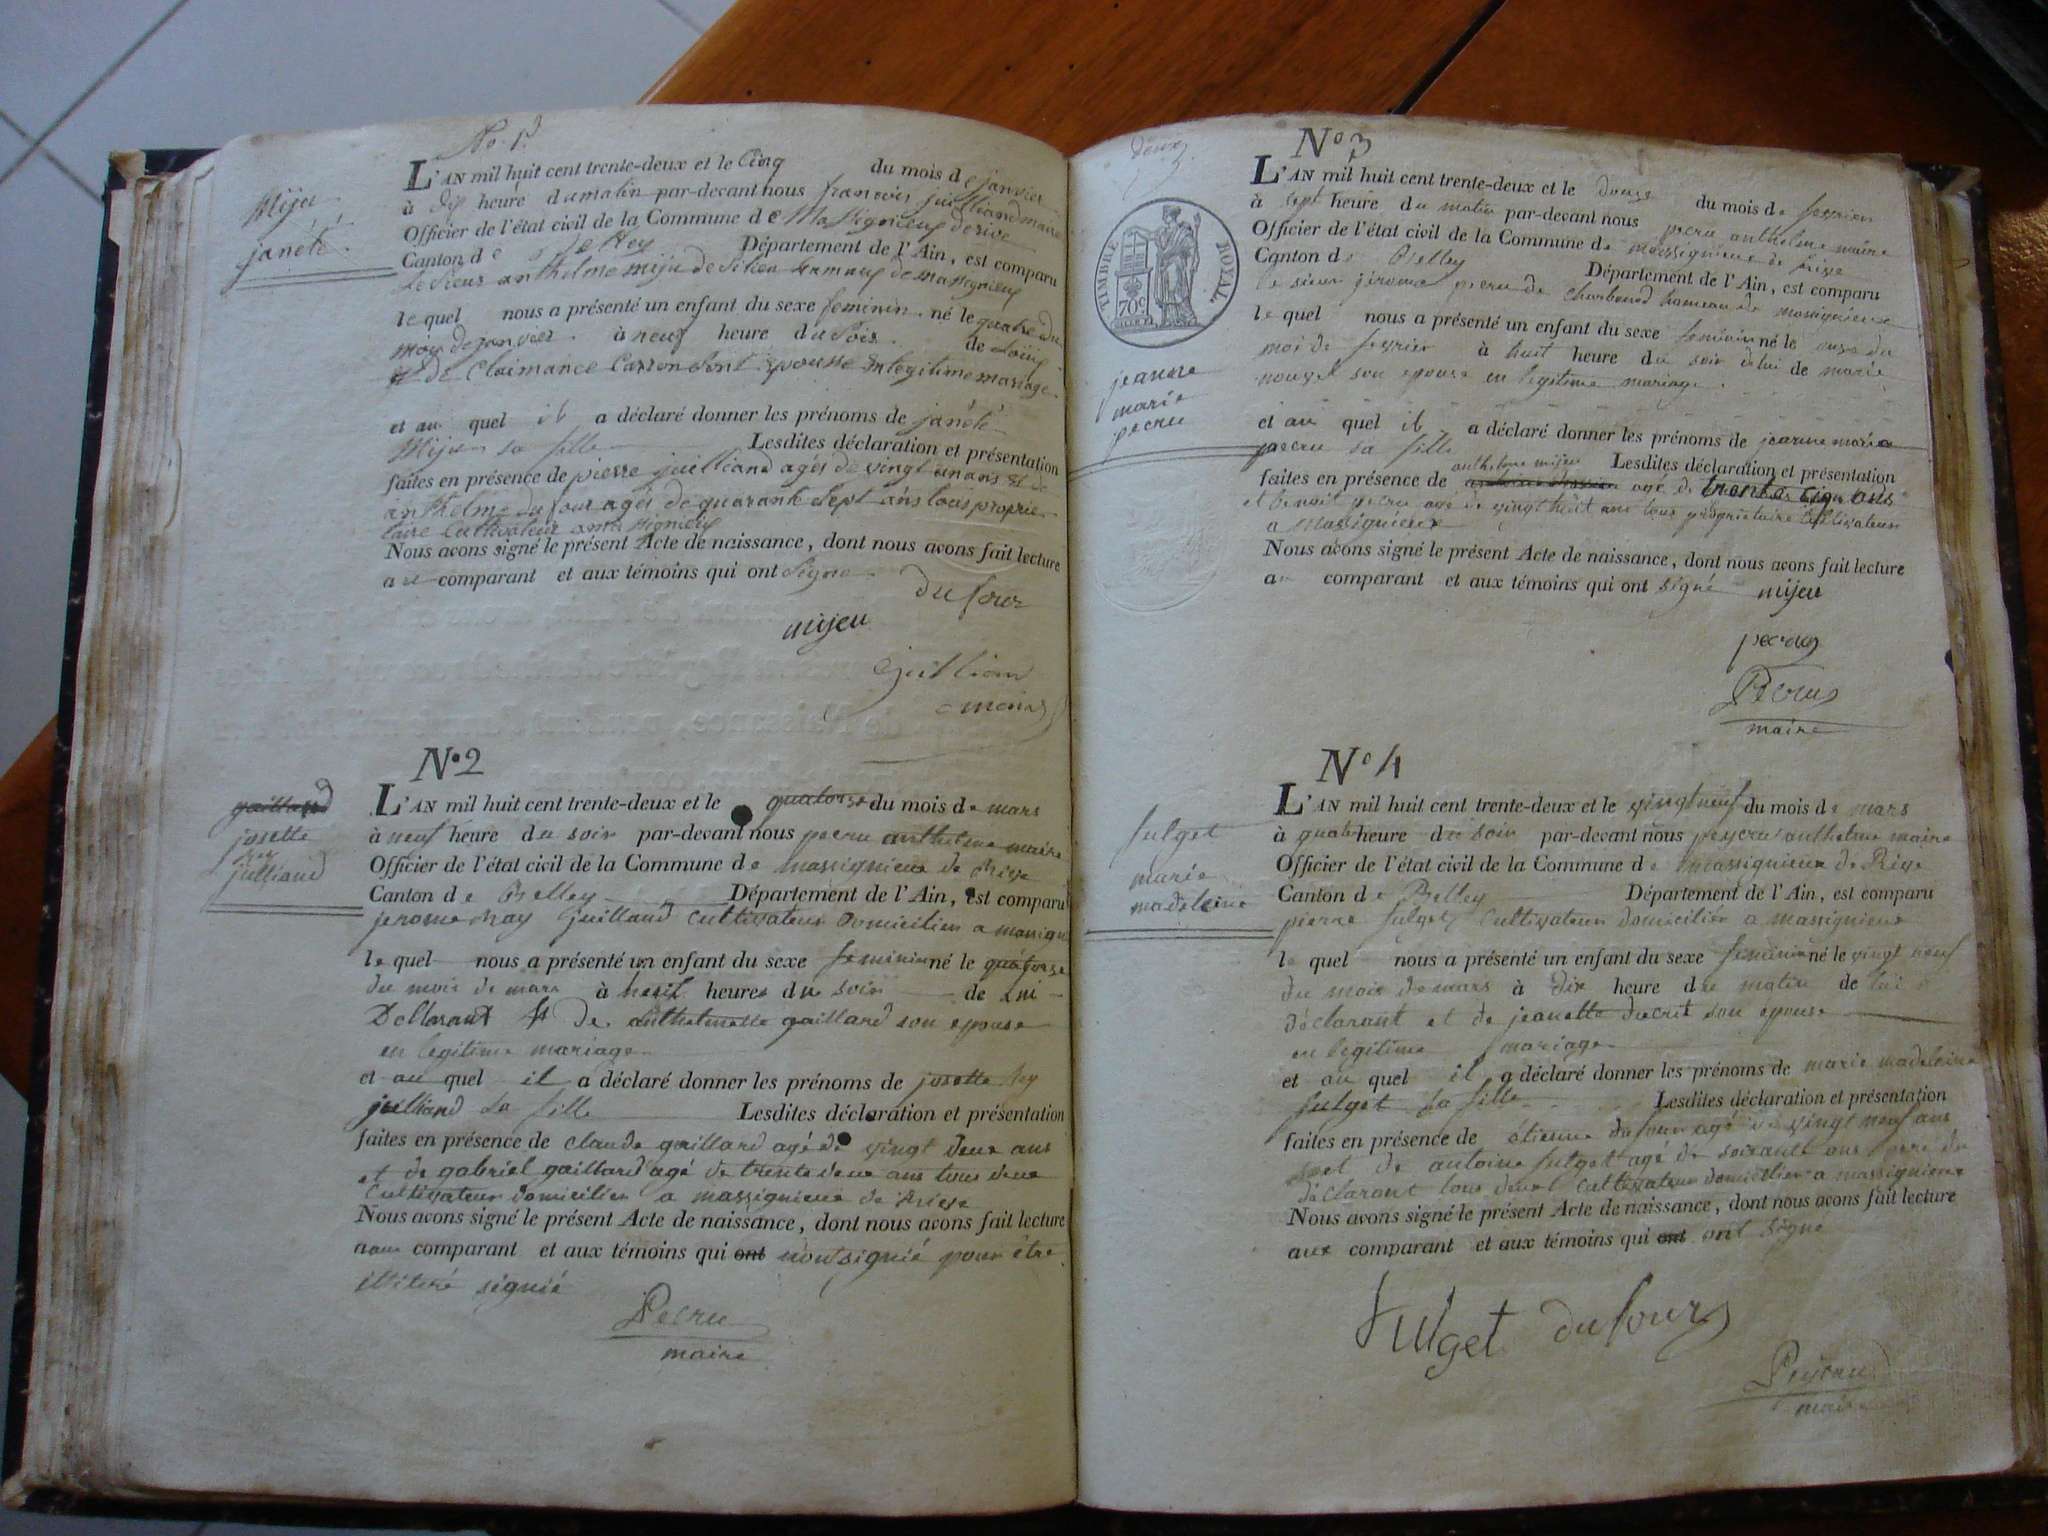 No. 1er
Mijeu
janété
L'AN mil huit cent trente-deux et le Cinq du mois de janvier
à dix heure du matin par-devant nous francois juilliand maire
Officier de l'état civil de la Commune de Massignieu de rive
Canton de Belley Département de l'Ain, est comparu
le sieur anthelme mijeu de hameau de massignieu
le quel nous a présenté un enfant du sexe feminin né le quatre du
mois de janvier à neuf heure du soir de
et de Claimance epousse en legitime mariage
et au quel il a déclaré donner les prénoms de janété
Mijeu sa fille Lesdites déclaration et présentation
faites en présence de pierre juilliand agés de vingt un ans et de
anthelme du four agés de quarante sept ans tous proprie
taire Cultivateur a massignieu
Nous avons signé le présent Acte de naissance, dont nous avons fait lecture
au comparant et aux témoins qui ont signe
du four
mijeu
juilliand
maire
No. 2
gaillard
josette
rey
julliand
L'AN mil huit cent trente-deux et le quatorse du mois de mars
à neuf heure du soir par-devant nous pecru anthelme maire
Officier de l'état civil de la Commune de massignieu de Rive
Canton de Belley Département de l'Ain, est comparu
jerome Ray juilland cultivateur domicilier a massign
le quel nous a présenté un enfant du sexe feminin né le quatorse
du mois de mars à heures du soir de Lui
Dcllarant et de anthelmette gaillard son epouse
en legitime mariage
et au quel il a déclaré donner les prénoms de josette Rey
julliand sa fille Lesdites déclaration et présentation
faites en présence de claude gaillard agé de vingt deux ans
et de gabriel gaillard agé de trente deux ans tous deux
Cultivateur domicilier a massignieu de Rive
Nous avons signé le présent Acte de naissance, dont nous avons fait lecture
aux comparant et aux témoins qui ont n'ont signié pour être
illiteré signié
Pecru
maire
deux
TIMBRE ROYAL
70c
No 3
jeanne
marie
pecru
L'AN mil huit cent trente-deux et le douze du mois de fevrier
à sept heure du matin par-devant nous pecru anthelme maire
Officier de l'état civil de la Commune de massignieu de Rive
Canton de Belley Département de l'Ain, est comparu
le sieur jérome pecru de charbonod hameau de massignieux
le quel nous a présenté un enfant du sexe feminin né le onze du
moi de fevrier à huit heure du soir de lui de marie
nouvel son epouse en legitime mariage
et au quel il a déclaré donner les prénoms de jeanne marie
pecru sa fille Lesdites déclaration et présentation
faites en présence de anthelme mijeu agé de trente cinq ans
et benoit pecru agé de vingt huit ans tous propriétaire cultivateur
a massignieux
Nous avons signé le présent Acte de naissance, dont nous avons fait lecture
au comparant et aux témoins qui ont signé mijeu
pecru
Pecru
maire
No 4
fulget
marie
madeleine
L'AN mil huit cent trente-deux et le vingt neuf du mois de mars
à quatre heure du soir par-devant nous peycru anthelme maire
Officier de l'état civil de la Commune de massignieux de Rive
Canton de Belley Département de l'Ain, est comparu
pierre fulget Cultivateur domicilier a massignieux
le quel nous a présenté un enfant du sexe feminin né le vingt neuf
du mois de mars à dix heure du matin de lui
déclarant et de jeanette ducrit son epouse
en legitime mariage
et au quel il a déclaré donner les prénoms de marie madeleine
fulget sa fille Lesdites déclaration et présentation
faites en présence de étienne dufour agé de vingt neuf ans
et de antoine fulget agé de soixante ans pere du
déclarant tous deux cultivateur domicilier a massignieux
Nous avons signé le présent Acte de naissance, dont nous avons fait lecture
aux comparant et aux témoins qui ont ont signe
fulget dufour
Peycru
maire